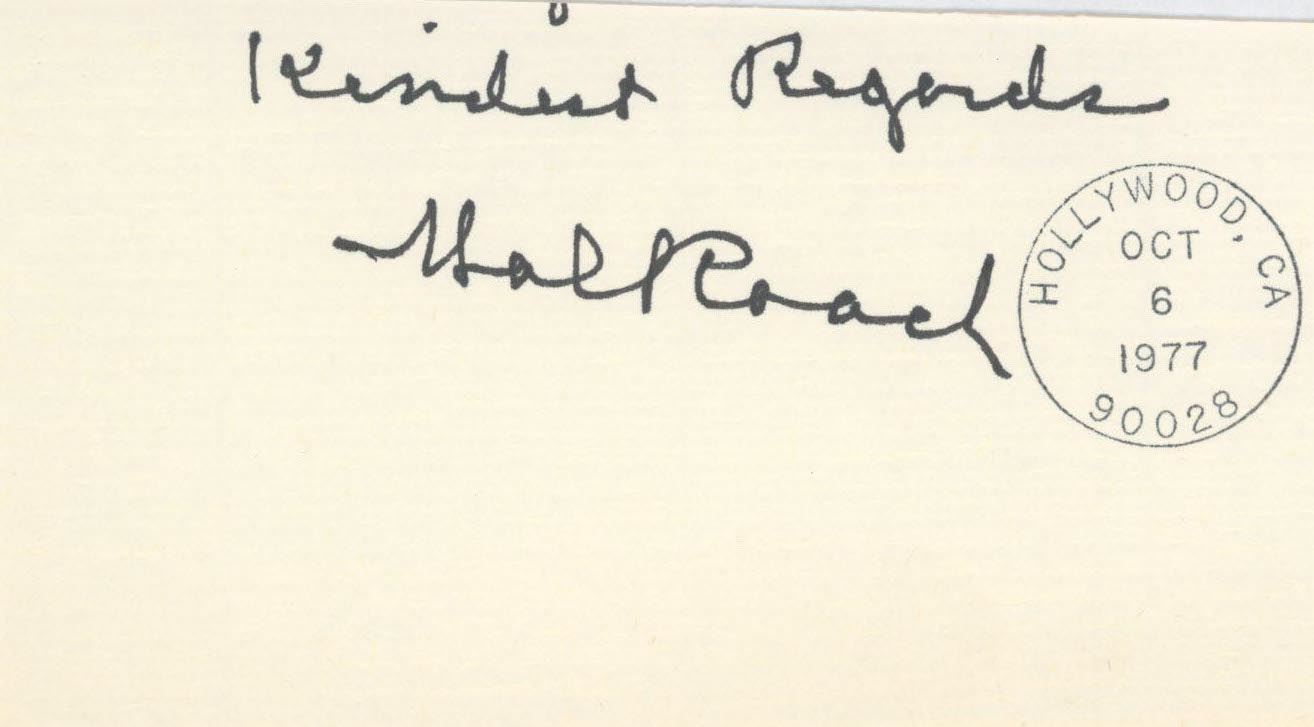 Kindest Regards
Hal Roach
HOLLYWOOD, CA
OCT
6
1977
90028